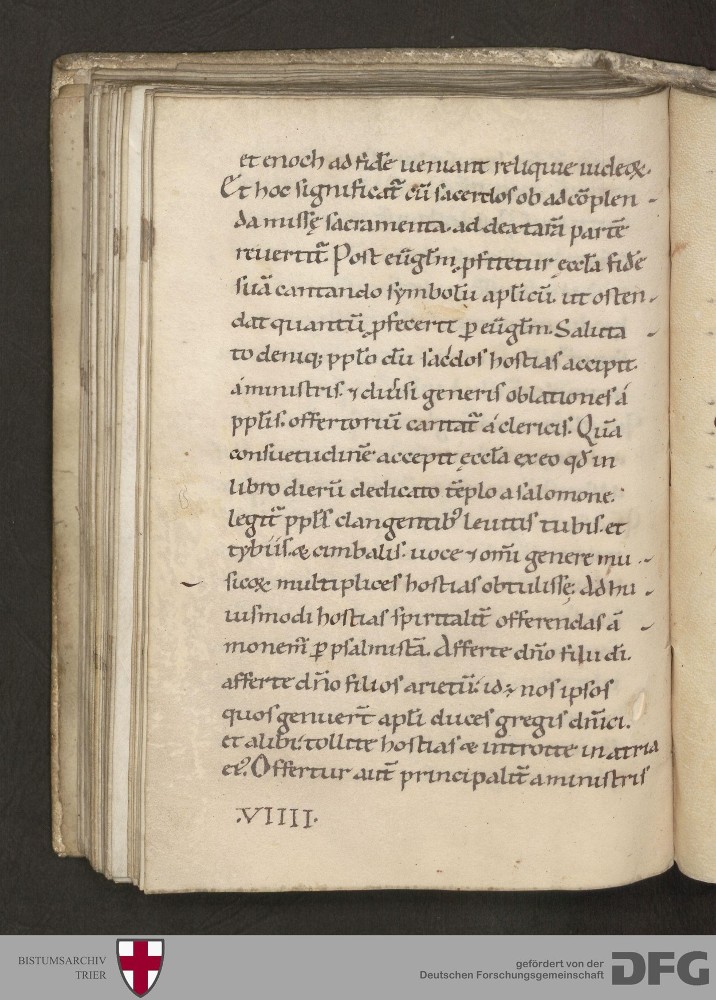 et enoch ad fidē ueniant reliquie iudeoꝝ.
Et hoc significat̄ cū sacerdos ob ad cōplen
da missę sacramenta. ad dextarā partē
reuertit̄ Post eūgłm ꝓfitetur ęccła fidē
suā cantando symbolū apłicū. ut osten
dat quantū ꝓfecerit ꝑ eūgłm. Saluta
to deniq; ppło dū sacdos hostias accipit
á ministris. ⁊ diusi generis oblationes á
ppłis. offertoriū cantat̄ á clericis. Quā
consuetudinē accepit ęccła ex eo qđ in
libro dierū dedicato tēplo a salomone.
legit̄ ppłs clangentib᾽ leuitis tubis. et
tybiis. & cimbalis. uoce ⁊ omī genere mu
sicoꝝ multiplices hostias obtulissę. Ad hu
iusmodi hostias spiritalit̄ offerendas ā
monem̄ ꝑ psalmistā. Afferte dńo filii di.
afferte dńo filios arietū. id; nos ipsos
quos genuer̄t apłi duces gregis dn̄ici.
et alibi. tollite hostias & introite in atria
ei᾽. Offertur aut̄ principalit̄ a ministris
.VIIII.
BISTUMSARCHIV
TRIER
gefördert von der
Deutschen Forschungsgemeinschaft
DFG